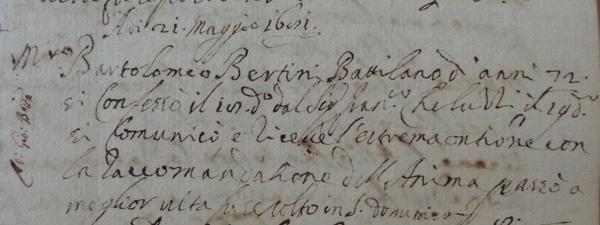 A di 21. Maggio 1691.
M.ro Bartolomeo Bertini Battilano d'anni 72.
si Confessò il 18. d.o dal Sig.r Fran.co Cheluzzi il 19 d.o
si Comunicò e ricevè l'estrema ontione con
la raccomandatione dell Anima passò a
meglior vita fu sepolto in S. domenico